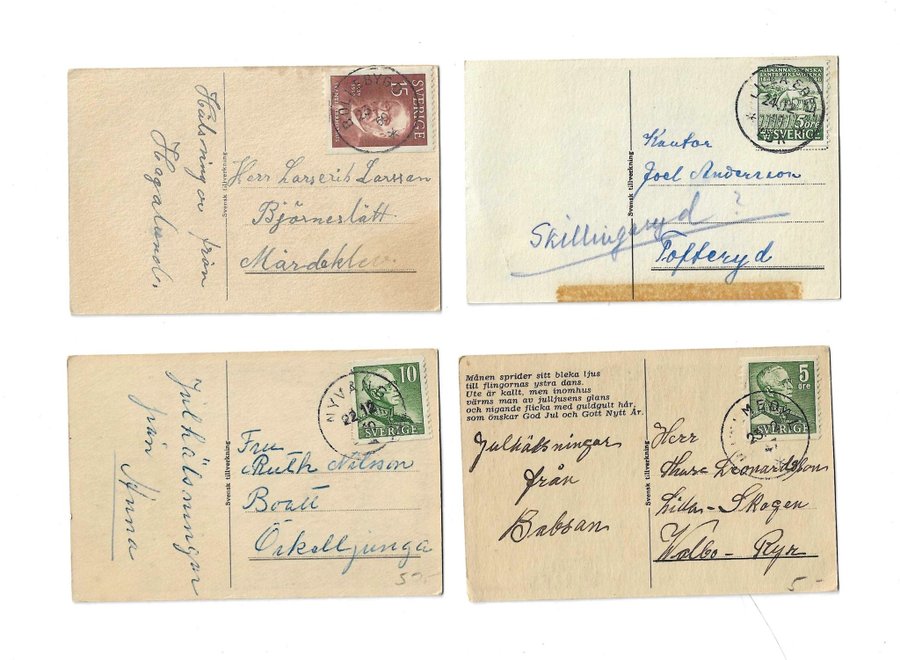 Hälsningar från
Hagalund.
Svensk tillverkning
15
SVERIGE
Herr Larserik Larsson
Björneslätt
Mårdaklev
Svensk tillverkning
ALLMÄNNA SVENSKA
5 ÖRE
SVERIGE
Kantor
Joel Andersson
Skillingaryd ?
Tofteryd
Julhälsningar
från Anna
Svensk tillverkning
10
NYVÅNG
22.12
SVERIGE
Fru
Ruth Nilsson
Boatt
Örkelljunga
Månen sprider sitt bleka ljus
till flingornas ystra dans.
Ute är kallt, men inomhus
värms man av julljusens glans
och nigande flicka med guldgult hår,
som önskar God Jul och Gott Nytt År.
Julhälsningar
från
Babsan
Svensk tillverkning
5
öre
SVERIGE
Herr
Thure Leonardsson
Lilla-Skogen
Valbo-Ryr
5-